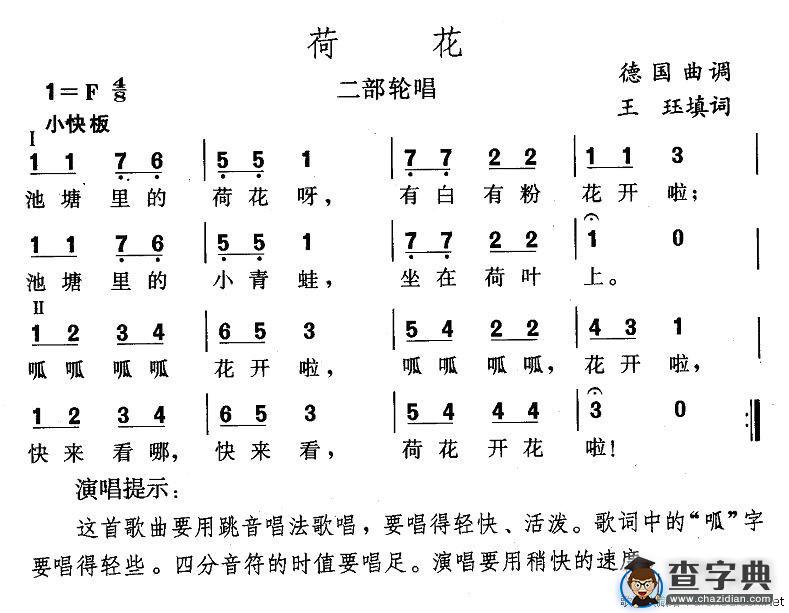 荷 花
德国曲调
1=F 4/8
二部轮唱
王 珏填词
小快板
I
1 1 7 6 | 5 5 1 | 7 7 2 2 | 1 1 3 |
池塘里的 荷花呀, 有白有粉 花开啦;
1 1 7 6 | 5 5 1 | 7 7 2 2 | 1 0 |
池塘里的 小青蛙, 坐在荷叶 上。
II
1 2 3 4 | 6 5 3 | 5 4 2 2 | 4 3 1 |
呱呱呱呱 花开啦, 呱呱呱呱, 花开啦,
1 2 3 4 | 6 5 3 | 5 4 4 4 | 3 0 :|
快来看哪, 快来看, 荷花开花 啦!
演唱提示:
这首歌曲要用跳音唱法歌唱，要唱得轻快、活泼。歌词中的“呱”字
要唱得轻些。四分音符的时值要唱足。演唱要用稍快的速度
查字典
www.chazidian.com